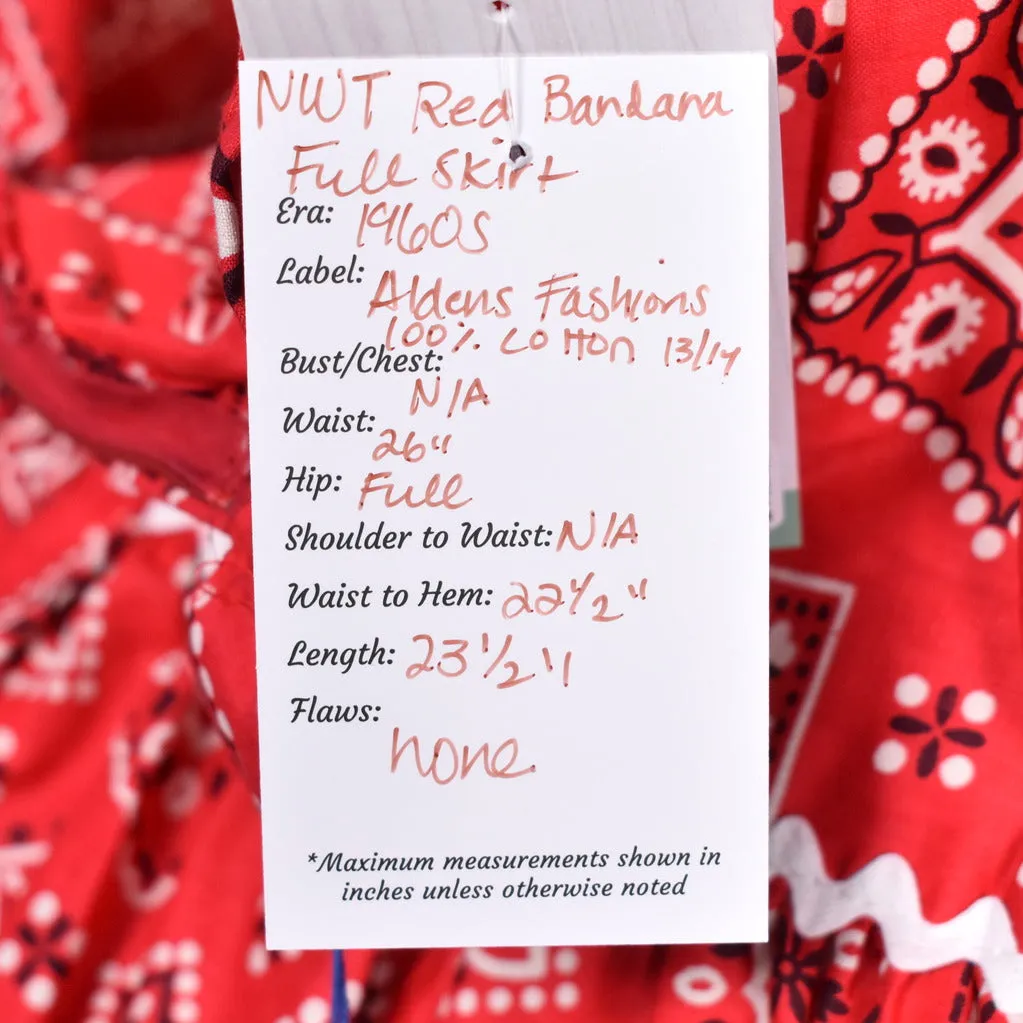 NWT Red Bandana
Full Skirt
Era: 1960s
Label: Aldens Fashions
100% Cotton 13/14
Bust/Chest: N/A
Waist: 26"
Hip: Full
Shoulder to Waist: N/A
Waist to Hem: 22 1/2"
Length: 23 1/2"
Flaws:
none
*Maximum measurements shown in
inches unless otherwise noted